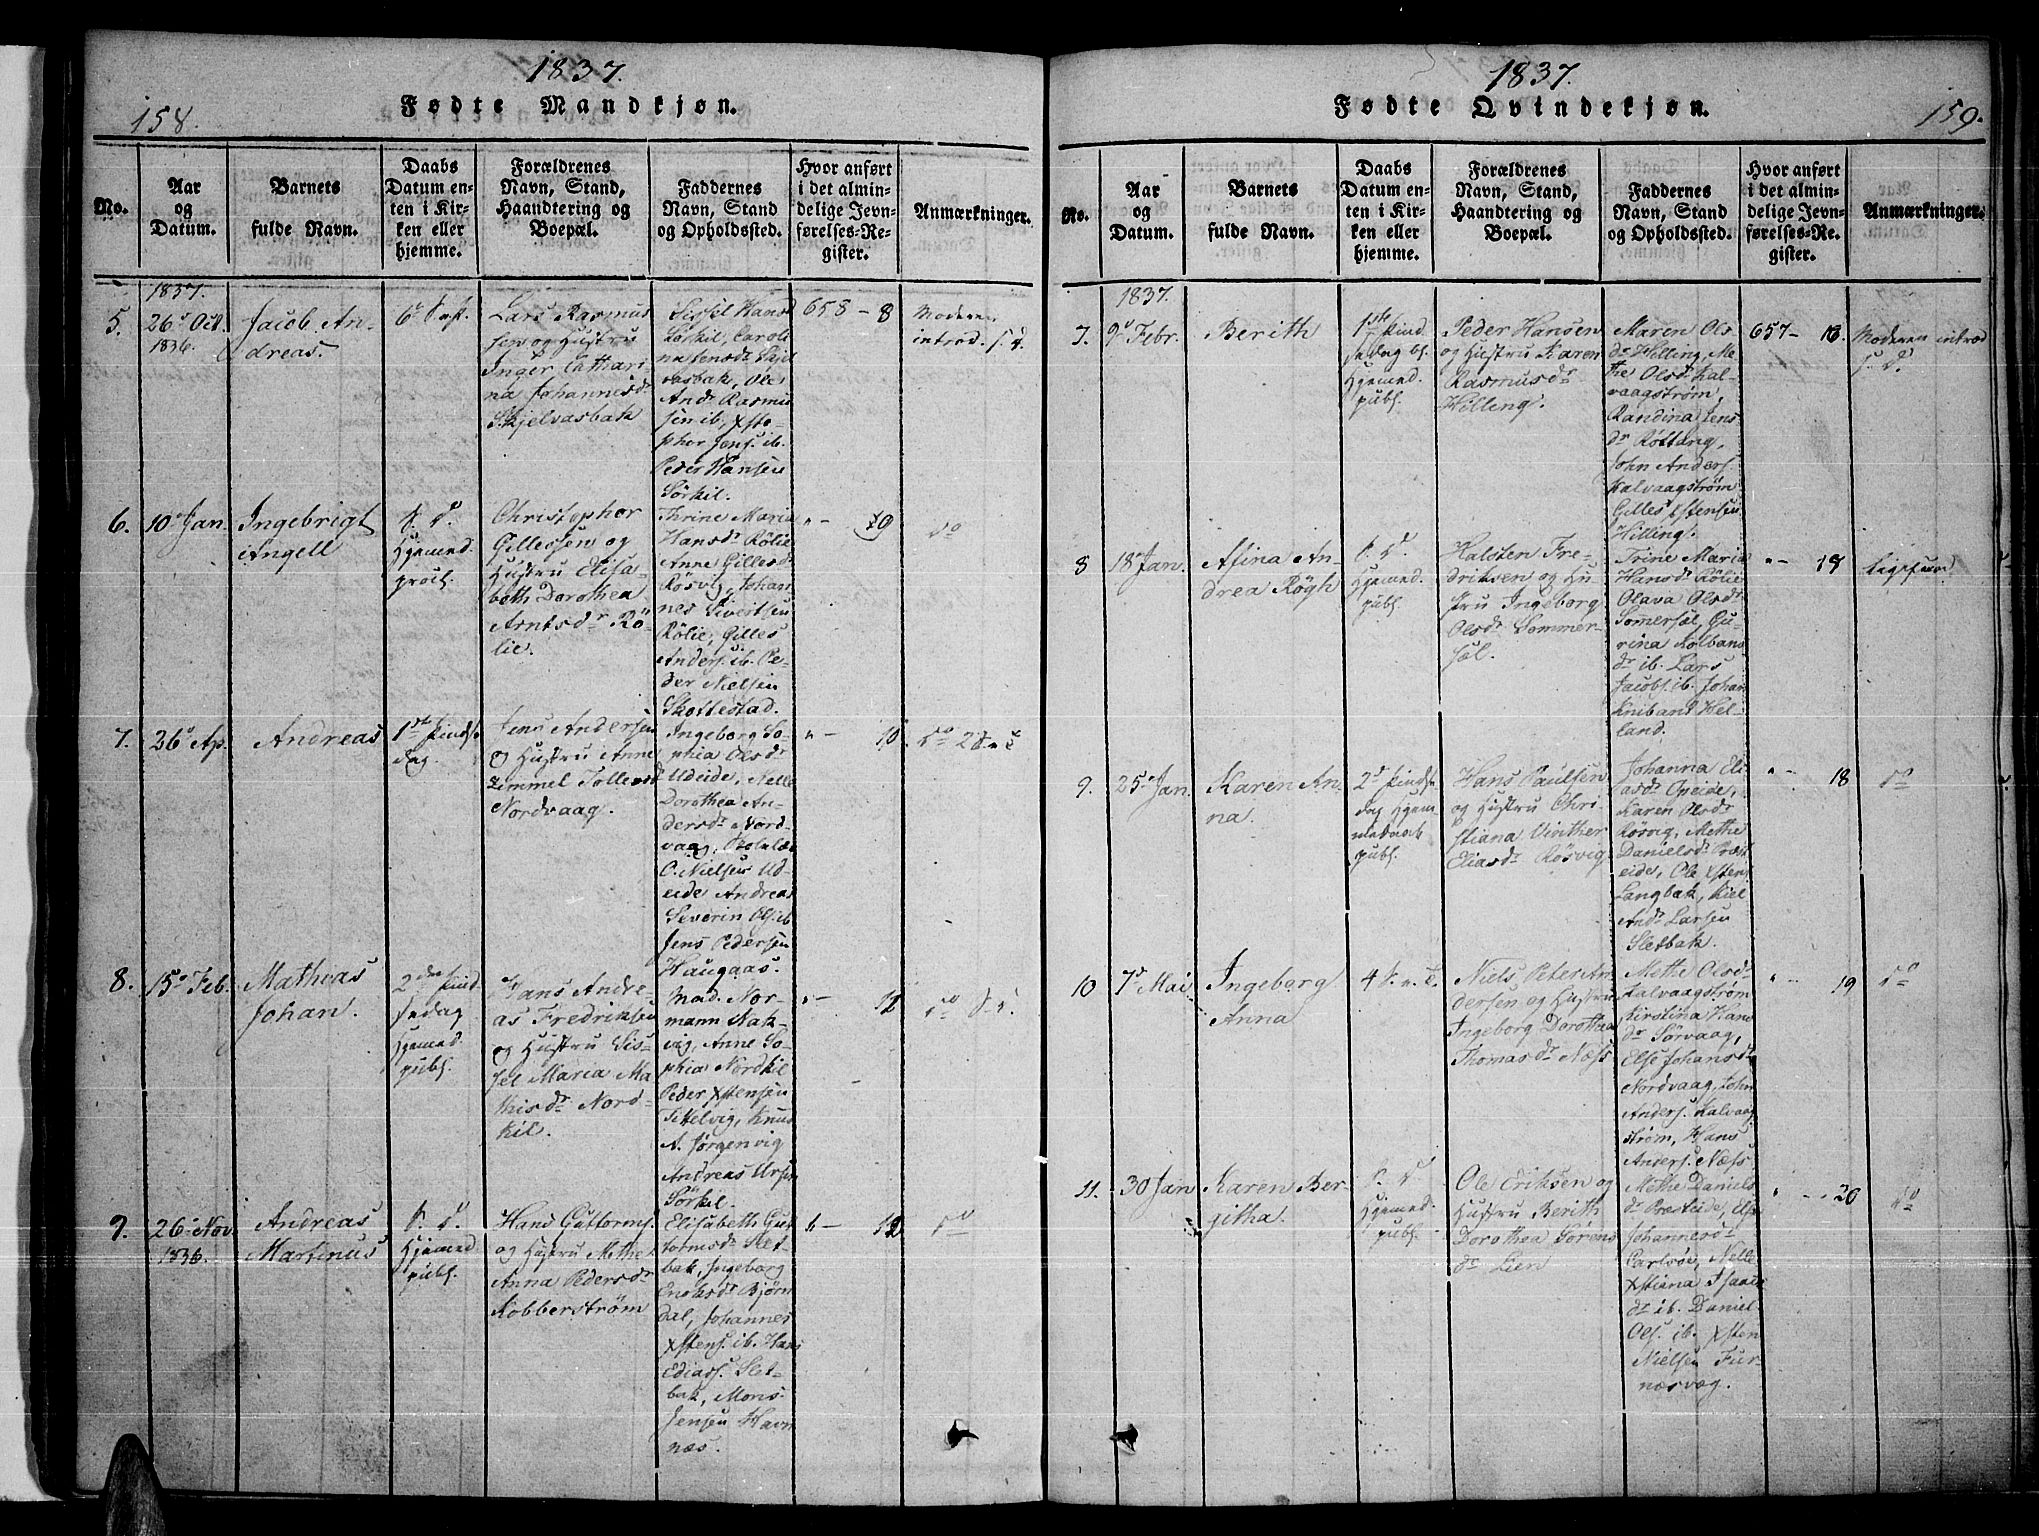 1837.
158.
Fødte Mandkjøn.
No.
Aar
og
Datum.
Barnets
fulde Navn.
Daabs
Datum en-
ten i Kir-
ken eller
hjemme.
Forældrenes
Navn, Stand,
Haandtering og
Boepæl.
Faddernes
Navn, Stand
og Opholdssted.
Hvor anført
i det almin-
delige Jevn-
førelses-Re-
gister.
Anmærkninger.
5.
1837.
26de Oct.
1836.
Jacob An-
dreas.
Lars Rasmus
sen og Hustru
Inger Cathari-
na Johannesdr
Skjelvasbak
Sissel Hansd
Sørkil, Caroli
na Jensdr
vasbak, Ole
Andr Rasmus
sen ib, Xsto-
pher Jens. ib.
Peder Hansen
Sørkil.
658 - 8
Moderen
introd. s. d.
6.
10de Jan.
Ingebrigt
Angell
S. D.
Hjemmed.
Christopher
Gillessen og
Hustru Elisa-
beth Dorothea
Arntsdr Rö-
lie.
Thrine Maria
Hansdr Rölie
Anne Gillesdr
Rösvig, Johan-
nes Sivertsen
Rölie, Gilles
Anders. ib. Pe-
der Nielsen
Skottestad.
" - 10
do
7.
26de Ap.
Andreas
1ste Pindse
dag
Jens Andersen
og Hustru Anne
Zimmel Tollevsdr
Nordvaag.
Ingeborg So-
phia Olsdr
Udeide, Nelle
Dorothea An-
dersdr Nord-
vaag,
O. Nielsen Ud-
eide Andreas
Severin Ols. ib
Jens Pedersen
Haugaas.
" - 10
8.
15de Feb.
Mathias
Johan.
2den Pind
sedag
Hjemmed.
publ.
Hans Andre-
as Fredriksen
og Hustru Sis-
sel Maria Ma-
thisdr Nord-
kil.
Mad. Nor-
mann Nak-
vig, Anne So-
phia Nordkil
Peder Xstensen
Tittelvig, Knud
A. Jørgenvig
Andreas
Sørkil.
" - 12
9.
26de Nov.
1836.
Andreas
Martinus
S. D.
Hjemmed
publ.
Hans Guttorms.
og Hustru Methe
Anna Pedersdr
Kobberstrøm
Elisabeth Gut-
tormsdr Slet-
bak, Ingeborg
Enoksdr Bjørn
dal, Johannes
Xstens. ib. Hans
Ediass. Slet-
bak, Mons
Jensen Havn
næs.
12
do
1837.
159.
Fødte Qvindekjøn.
No.
Aar
og
Datum.
Barnets
fulde Navn.
Daabs
Datum en-
ten i Kir-
ken eller
hjemme.
Forældrenes
Navn, Stand,
Haandtering og
Boepæl.
Faddernes
Navn, Stand
og Opholdssted.
Hvor anført
i det almin-
delige Jevn-
førelses-Re-
gister.
Anmærkninger.
7.
1837.
9de Febr.
Berith
1ste Pind
sedag bl.
Hjemmed.
publ.
Peder Hansen
og Hustru Karen
Rasmusdr
Hilling.
Maren Ols-
dr Hilling, Me-
the Olsdr Kal-
vaagstrøm,
Randina Jens
dr Röttang,
John Anders.
Kalvaagstrøm
Gilles Xstensen
Hilling.
657 - 16
Moderen introd
s. D.
8
18de Jan.
Afina An-
drea Rögh
S. D.
Hjemmed.
publ.
Halsten Fre-
driksen og Hu-
stru Ingeborg
Olsdr Sommer-
sæl.
Trine Maria
Hansdr Rölie
Olava Olsdr
Somersæl, Gu-
rina Kolbans
dr ib. Lars
Jacobs. ib. Johan
Knibant Hel-
land.
" - 17
ligesaa
9.
25de Jan.
Karen An-
na.
2d Pindse
dag Hjem-
medaab
publ.
Hans Paulsen
og Hustru Chri-
stiana Vinther
Eliasdr Rösvig
Johanna Eli-
asdr Opeide,
Karen Olsdr
Rösvig, Methe
Danielsdr Præst
eide, Ole Xstens.
Langbak, Kiel
Andr Larsen
Sletbak.
" - 18
do
10
7de Mai
Ingeborg
Anna
4 S. e. T.
Niels Peter An-
dersen og Hustru
Ingeborg Dorothea
Thomasdr Næss
Methe Olsdr
Kalvaagstrøm
Kirstina Hans
dr Sørvaag,
Else Johansdr
Nordvaag, John
Anders. Kalvaag
strøm, Hans
Anders. Næss
" - 19
do
11.
30 Jan
Karen Ber-
githa.
S. D.
Hjemmed
publ.
Ole Eriksen og
Hustru Berith
Dorothea Sørens
dr Lien
Methe Daniels
dr Præsteide, Else
Johannesdr
Carlsøe, Nelle
Xstiana Isaacs
dr ib. Daniel
Ols. ib. Xsten
Nielsen Fur-
næsvæg.
" - 20
do